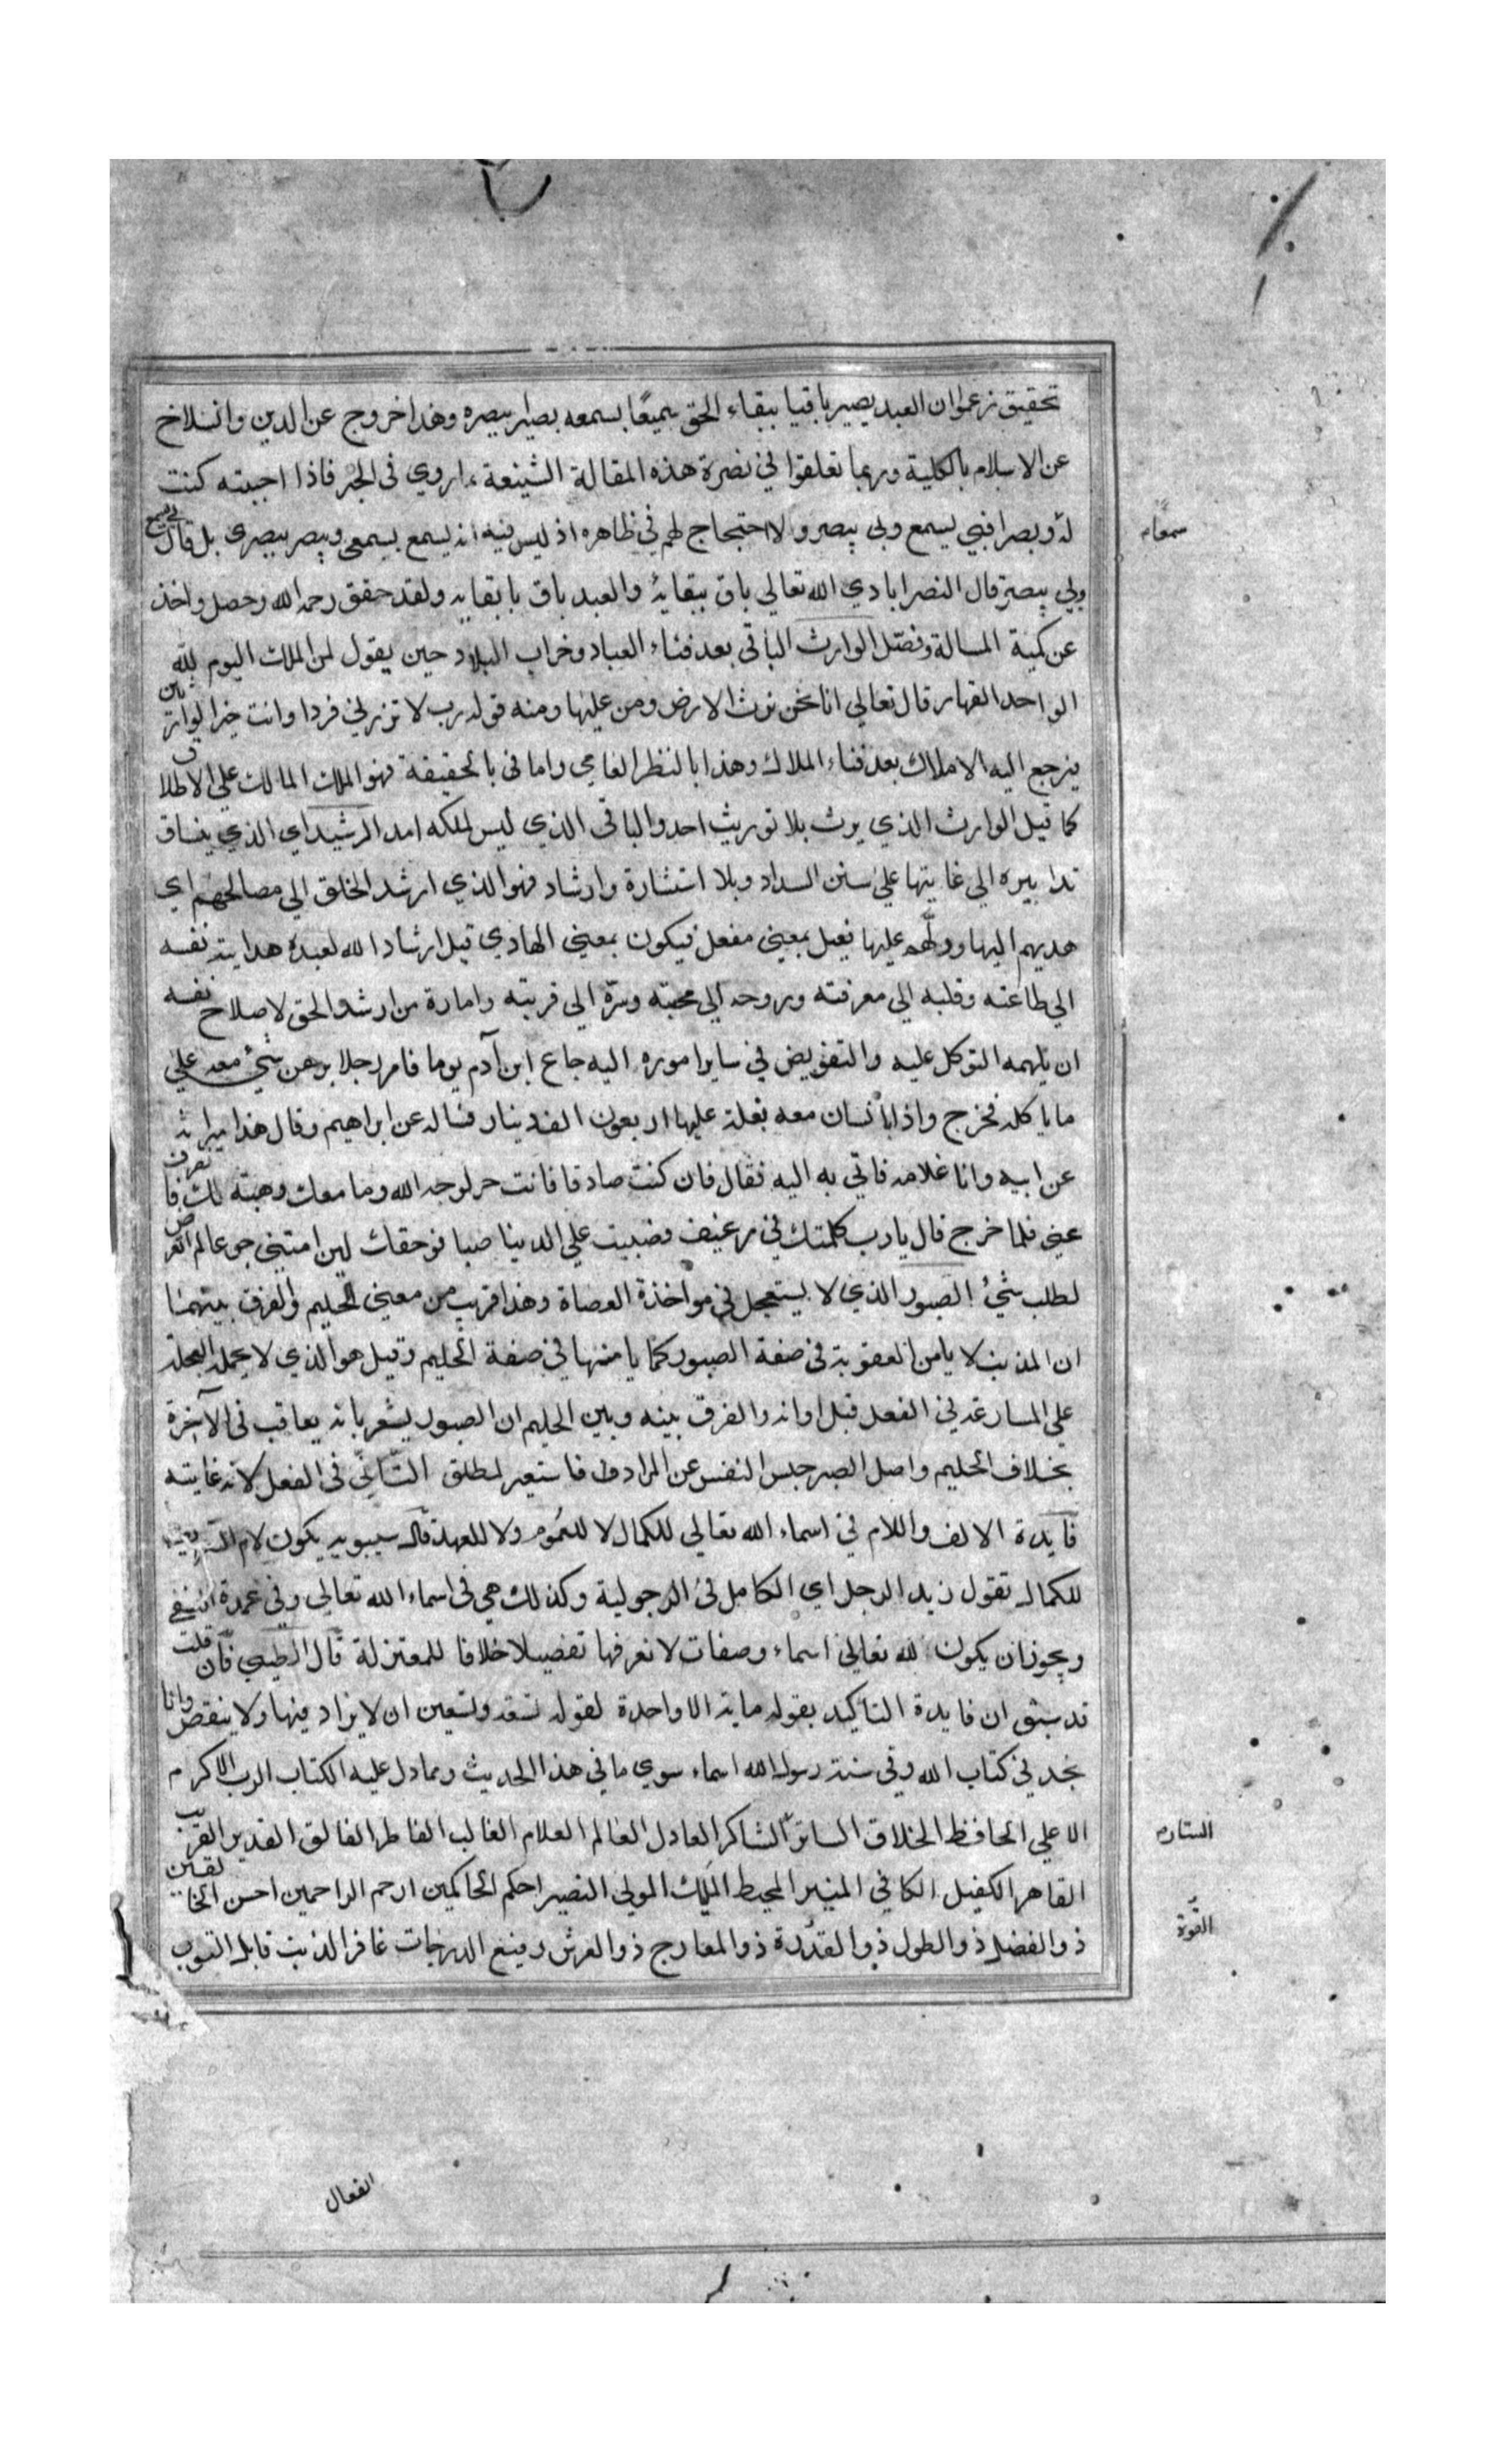 تحقيق زعموا ان العبد يصير باقيا ببقاء الحق سميعا بسمعه بصيرا ببصره وهذا خروج عن الدين وانسلاخ
عن الاسلام بالكلية وربما تعلقوا في نصرة هذه المقالة الشنيعة بما روي فى الخبر فاذا احببته كنت
له وبصرا فبي يسمع وبي يبصر ولا احتجاج لهم في ظاهره اذ ليس فيه انه يسمع بسمعي ويبصر ببصرى بل قال بي يسمع
سمعا
وبي يبصر قال النصرابادي الله تعالي باق ببقائه والعبد باق بابقايه ولقد حقق رحمه الله وحصل واخذ
عن كمية المسالة وفصل الوارث الباقى بعد فناء العباد وخراب البلاد حين يقول لمن الملك اليوم لله
الواحد القهار قال تعالي انا نحن نرث الارض ومن عليها ومنه قوله رب لا تذرني فردا وانت خير الوارثين
يرجع اليه الاملاك بعد فناء الملاك وهذا بالنظر العامي واما فى بالحقيقة فهو الملك المالك علي الاطلاق
كما قيل الوارث الذي يرث بلا توريث احد والباقى الذي ليس لملكه امد الرشيد اي الذي ينساق
تدابيره الي غايتها علي سنن السداد وبلا استشارة وارشاد فهو الذي ارشد الخلق الي مصالحهم اي
هديهم اليها ودلهم عليها فعيل بمعني مفعل فيكون بمعني الهادي قيل ارشاد الله لعبده هداية نفسه
الي طاعته وقلبه الي معرفته وروحه الي محبته وسره الي قربته وامارة من ارشده الحق لاصلاح نفسه
ان يلهمه التوكل عليه والتفويض في ساير اموره اليه جاع ابن آدم يوما فامر رجلا برهن شيء معه علي
ما ياكله فخرج واذا بانسان معه بغلة عليها اربعون الف دينار فساله عن ابراهيم وقال هذا ميراثه
عن ابيه وانا غلامه فاتي به اليه فقال فان كنت صادقا فانت حر لوجه الله وما معك وهبته لك فانصرف
عني فلما خرج قال يا رب كلمتك في رغيف فصببت علي الدنيا صبا فوحقك لين امتني جوعا لم اتعرض
لطلب شيء الصبور الذي لا يستعجل في مواخذة العصاة وهذا قريب من معني الحليم والفرق بينهما
ان المذنب لا يامن العقوبة فى صفة الصبور كما يامنها في صفة الحليم وقيل هو الذي لا يحمله العجلة
علي المسارعة في الفعل قبل اوانه والفرق بينه وبين الحليم ان الصبور يشعر بانه يعاقب فى الآخرة
بخلاف الحليم واصل الصبر حبس النفس عن المراد فاستعير لمطلق التأني فى الفعل لانه غايته
فايدة الالف واللام في اسماء الله تعالي للكمال لا للعموم ولا للعهد قال سيبويه يكون لام التعريف
للكمال تقول زيد الرجل اي الكامل فى الرجولية وكذلك هي فى اسماء الله تعالي وفي عمدة النسفي
ويجوز ان يكون لله تعالي اسماء وصفات لا نعرفها تفصيلا خلافا للمعتزلة قال الطيبي فان قلت
قد سبق ان فايدة التاكيد بقوله ماية الا واحدة لقوله تسعة وتسعين ان لا يزاد فيها ولا ينقص وانا
نجد في كتاب الله وفي سنة رسول الله اسماء سوي ما في هذا الحديث ومما دل عليه الكتاب الرب الاكرم
الاعلي الحافظ الخلاق الساتر الشاكر العادل العالم العلام الغالب الفاطر الفالق القدير القريب
الستار
القاهر الكفيل الكافي المنير المحيط المليك المولي النصير احكم الحاكمين ارحم الراحمين احسن الخالقين
ذو الفضل ذو الطول ذو القدرة ذو المعارج ذو العرش رفيع الدرجات غافر الذنب قابل التوب
القوة
الفعال